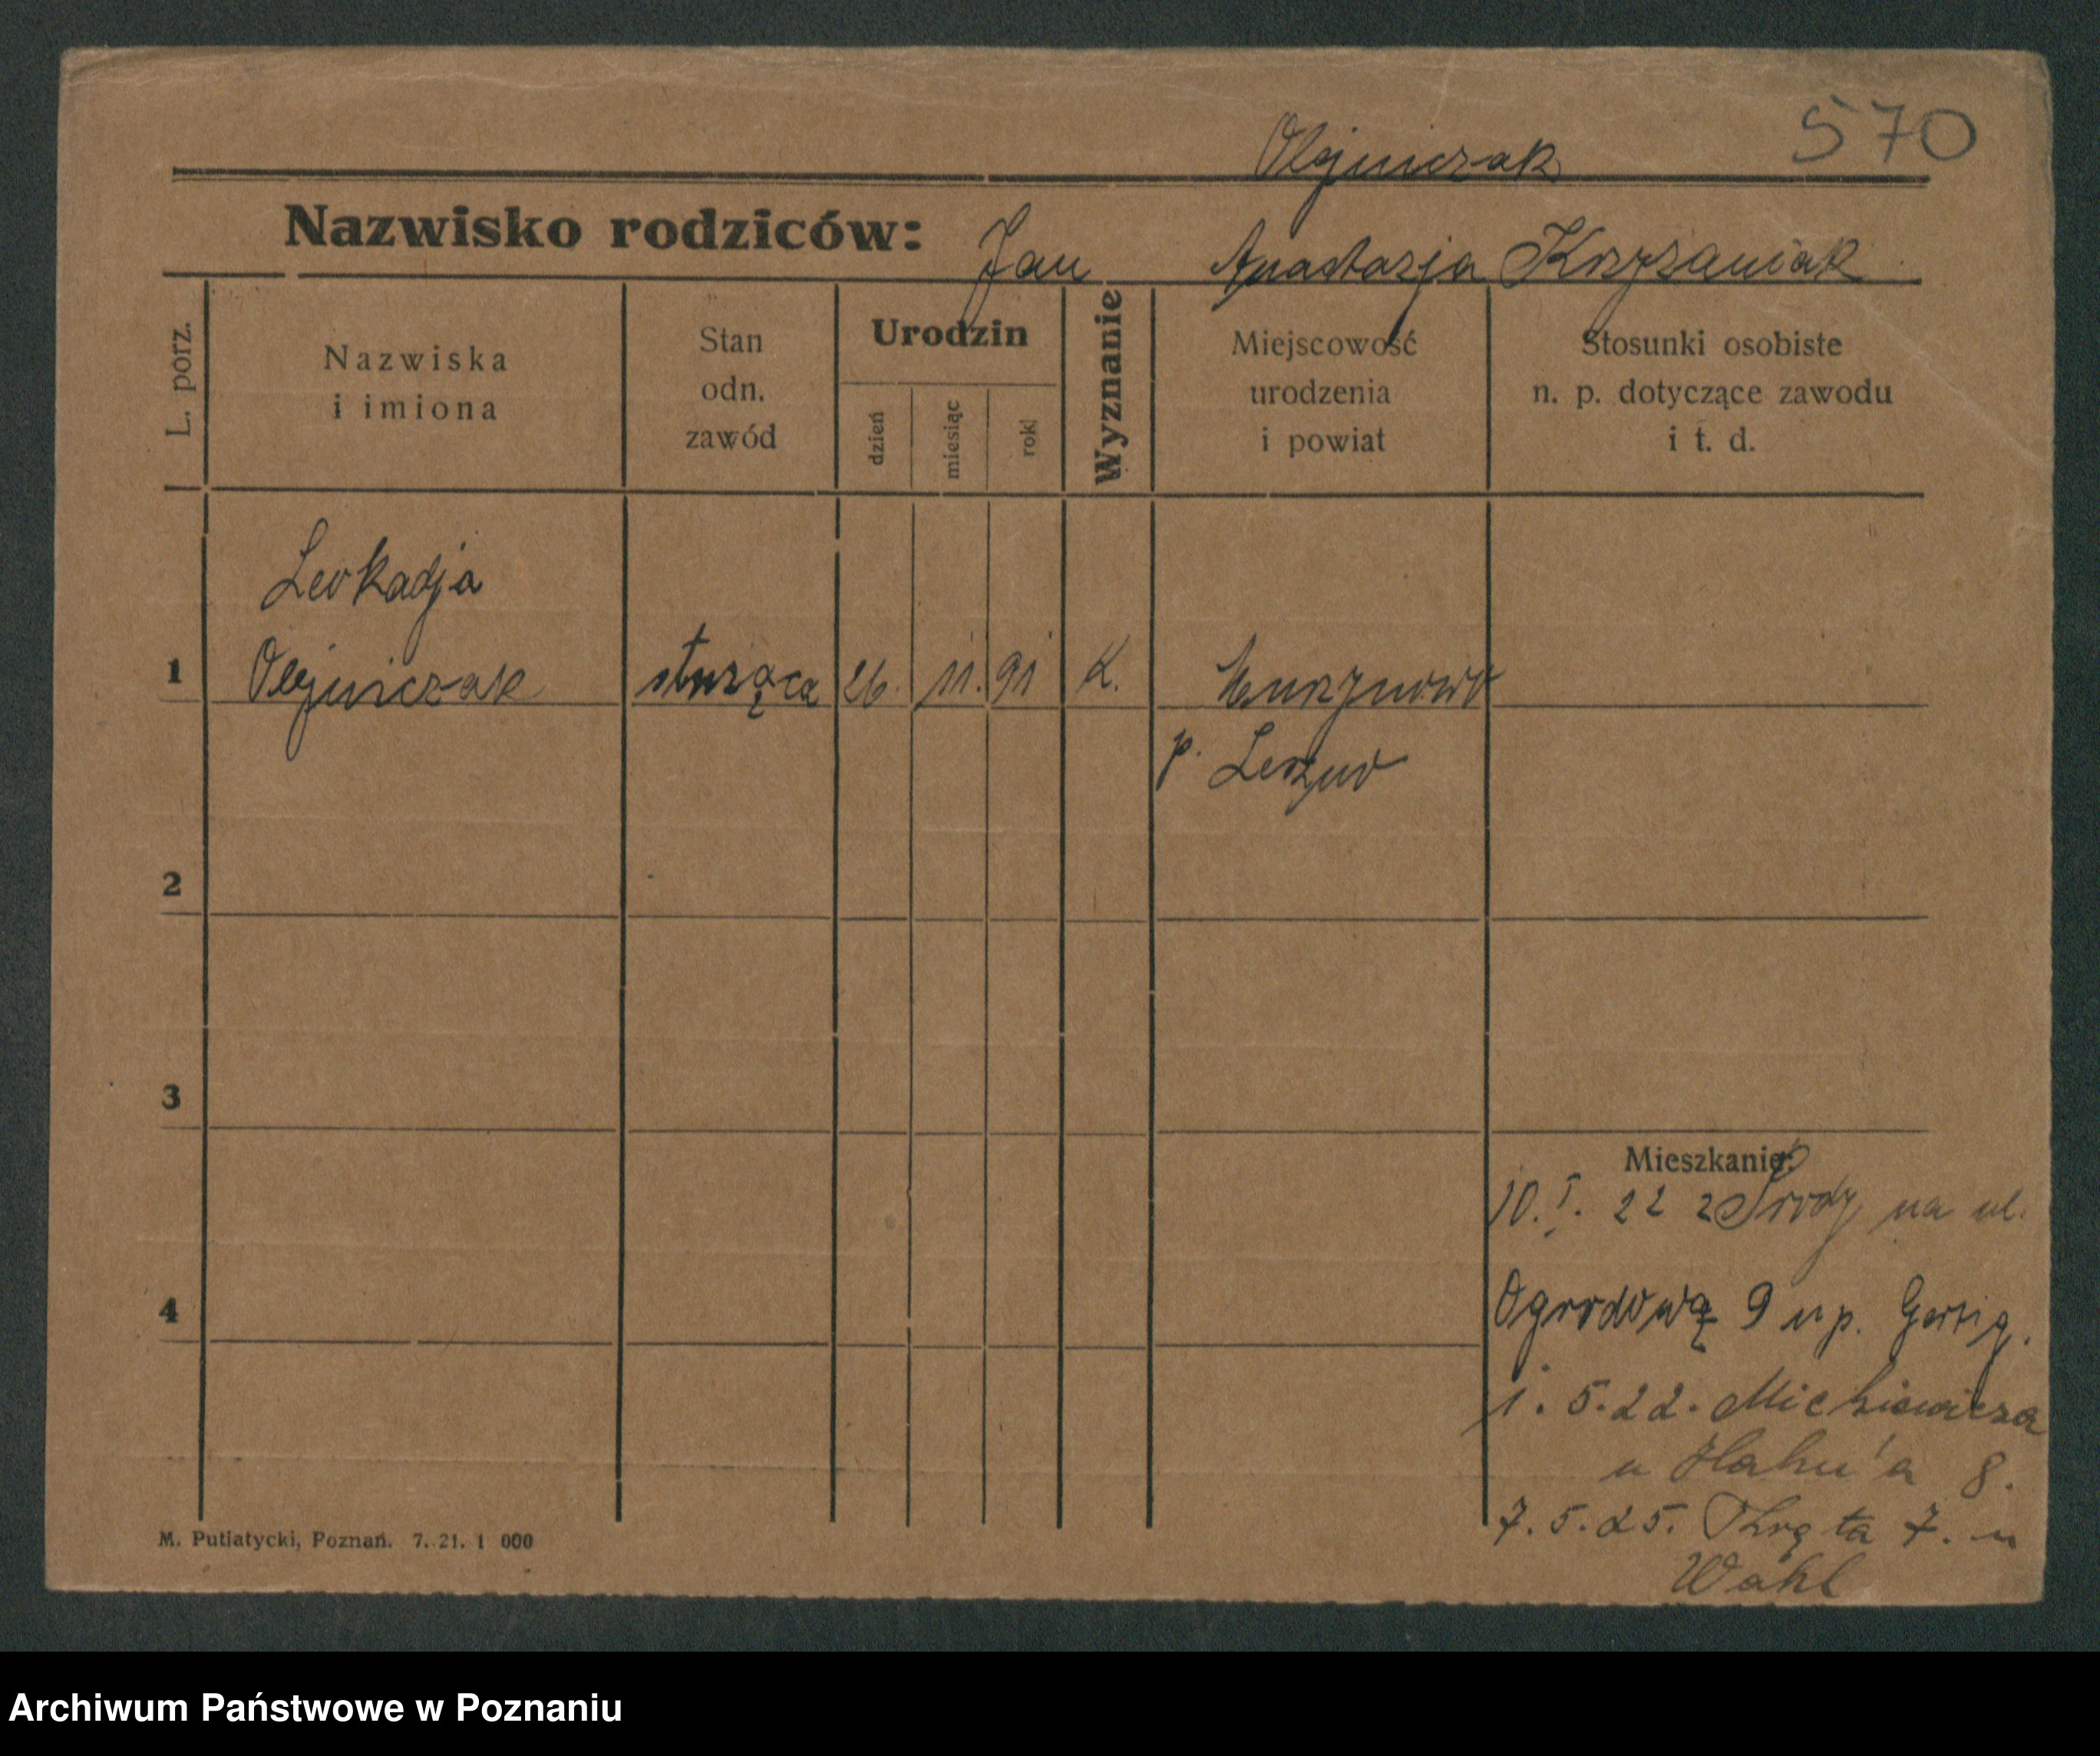 570
Olejniczak
Nazwisko rodziców: Jan Anastazja Krzyżaniak
L. porz.
Nazwiska
i imiona
Stan
odn.
zawód
Urodzin
dzień
miesiąc
rok
Wyznanie
Miejscowość
urodzenia
i powiat
Stosunki osobiste
n. p. dotyczące zawodu
i t. d.
Leokadja
1 Olejniczak służąca 26. 11. 91 K. Murzynowo
p. Leszno
2
3
Mieszkanie:
10. I. 22 z Środy na ul.
4
Ogrodową 9 u p.
1. 5. 22. Mickiewicza
u Hahn'a 8.
7. 5. 25. Kręta 7. u
Wahl
M. Putiatycki, Poznań. 7. 21. 1 000
Archiwum Państwowe w Poznaniu